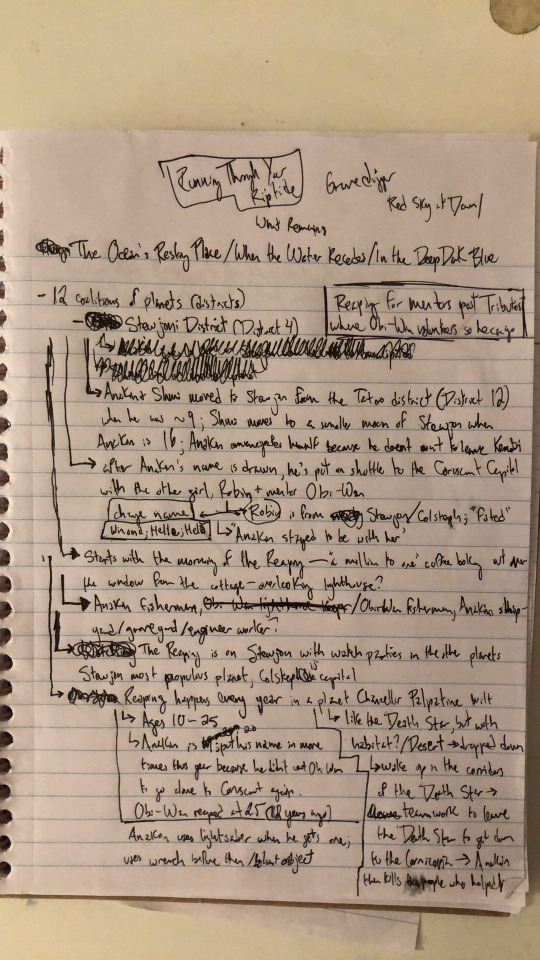 Running Through Your Riptide
Gravedigger
Red Sky at Dawn
What Remains
The Ocean's Resting Place / When the Water Recedes / In the Deep Dark Blue
- 12 coalitions of planets (districts)
Reaping for mentors past Tributes where Obi-Wan volunteers so he can go
- Stewjoni District (District 4)
→ Anakin + Shmi moved to Stewjon from the Tatoo district (District 12)
when he was ~9; Shmi moves to a smaller moon of Stewjon when
Anakin is 16; Anakin emancipates himself because he doesn't want to leave Kenobi
→ after Anakin's name is drawn, he's put on shuttle to the Coruscant Capitol
with the other girl, Robin + mentor Obi-Wan
change name
Robin is from Stewjon/Calstoph; "Fated"
Winona; Hella; Hela
↳ "Anakin stayed to be with her"
→ Starts with the morning of the Reaping — "a million to one" coffee looking out over
the window from the cottage - overlooking lighthouse?
→ Anakin fisherman, Obi-Wan lighthouse keeper / Obi-Wan fisherman, Anakin ship-
yard/graveyard/engineer worker?
→ The Reaping is on Stewjon with watch parties in the other planets
Stewjon most populous planet, is capital
→ Reaping happens every year in a planet Chancellor Palpatine built
↳ Ages 10-25
↳ Anakin is 20 + put his name in more
times this year because he didn't want Obi-Wan
to go alone to Coruscant again.
Obi-Wan reaped at 25 (12 years ago)
Anakin uses lightsaber when he gets one;
uses wrench before then / blunt object
↳ like the Death Star, but with
habitat? / Desert → dropped down
↳ woke up in the corridors
of the Death Star →
teamwork to leave
the Death Star to get down
to the Cornucopia → Anakin
then kills the people who helped